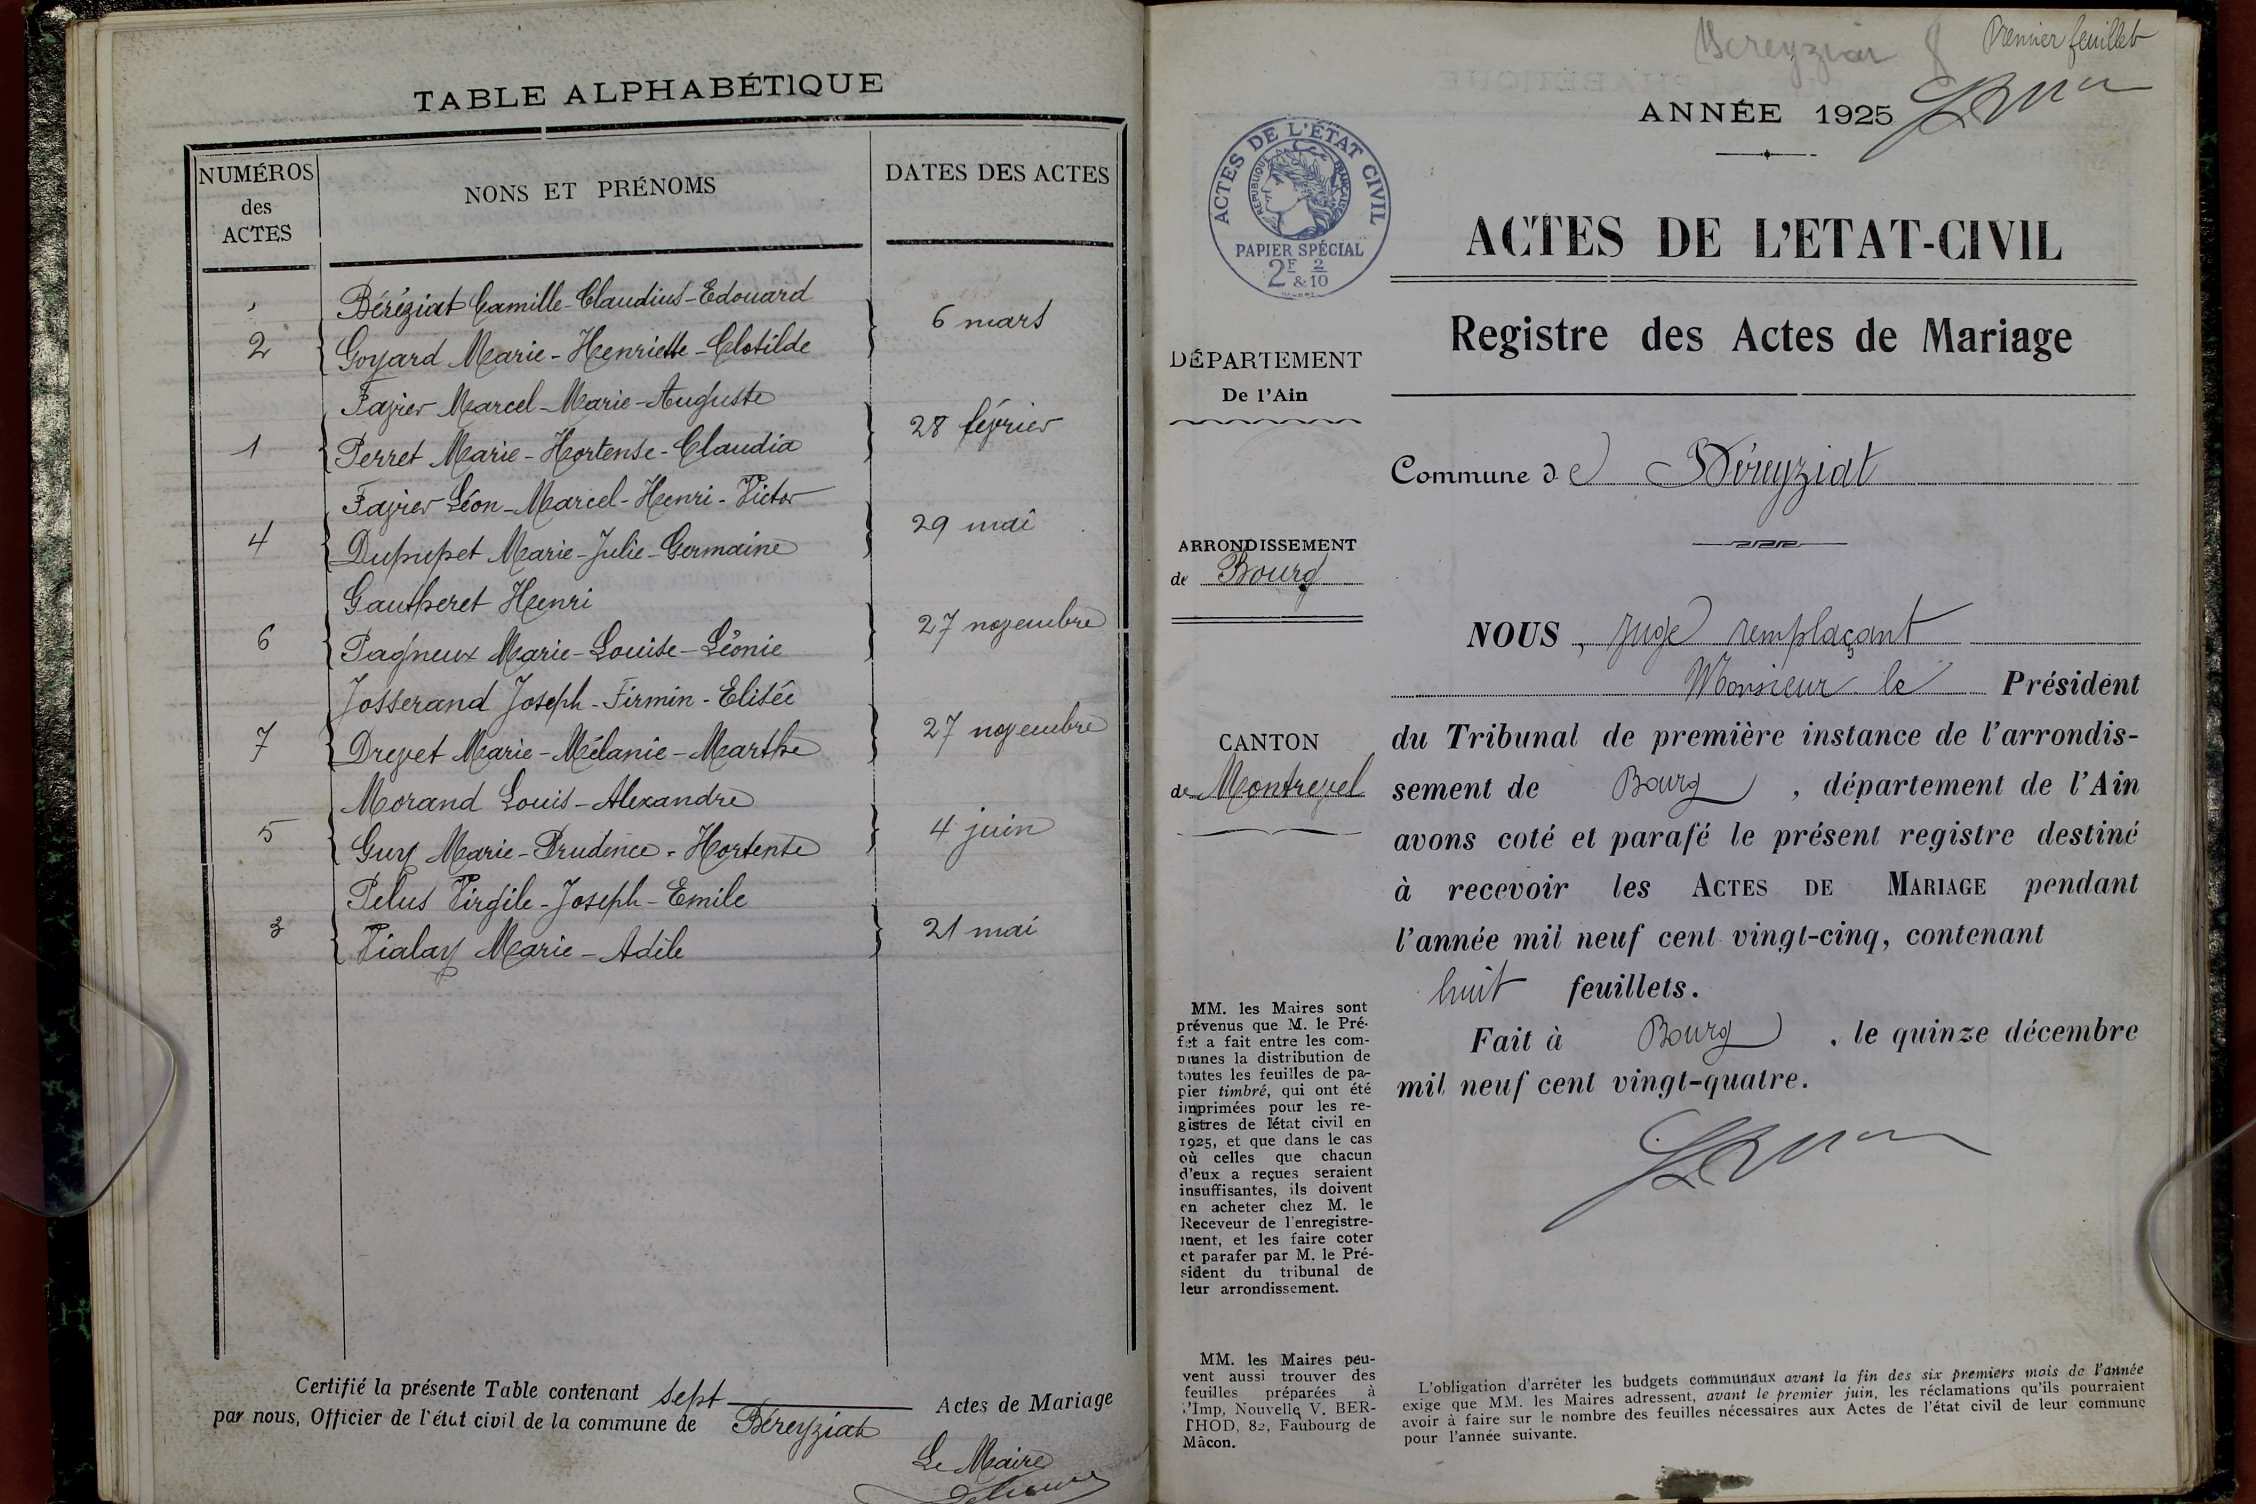 TABLE ALPHABÉTIQUE
NUMÉROS
des
ACTES
NONS ET PRÉNOMS
DATES DES ACTES
Béréziat Camille-Claudius-Edouard
2
Goyard Marie-Henriette-Clotilde
6 mars
Favier Marcel-Marie-Auguste
1
Perret Marie-Hortense-Claudia
28 février
Favier Léon-Marcel-Henri-Victor
4
Dupupet Marie-Julie-Germaine
29 mai
Gautheret Henri
6
Pagneux Marie-Louise-Léonie
27 novembre
Josserand Joseph-Firmin-Elisée
7
Drevet Marie-Mélanie-Marthe
27 novembre
Morand Louis-Alexandre
5
Guy Marie-Prudence-Hortense
4 juin
Pelus Virgile-Joseph-Emile
3
Vialay Marie-Adèle
21 mai
Certifié la présente Table contenant sept Actes de Mariage
par nous, Officier de l'état civil de la commune de Béreyziat
Le Maire
Bereyziat 8
Premier feuillet
ANNÉE 1925
ACTES DE L'ÉTAT CIVIL
RÉPUBLIQUE FRANÇAISE
PAPIER SPÉCIAL
2F & 2/10
ACTES DE L'ETAT-CIVIL
Registre des Actes de Mariage
DÉPARTEMENT
De l'Ain
Commune de Béreyziat
ARRONDISSEMENT
de Bourg
CANTON
de Montrevel
NOUS, Juge remplaçant
Monsieur le Président
du Tribunal de première instance de l'arrondis-
sement de Bourg, département de l'Ain
avons coté et parafé le présent registre destiné
à recevoir les ACTES DE MARIAGE pendant
l'année mil neuf cent vingt-cinq, contenant
huit feuillets.
Fait à Bourg, le quinze décembre
mil neuf cent vingt-quatre.
MM. les Maires sont
prévenus que M. le Pré-
fet a fait entre les com-
munes la distribution de
toutes les feuilles de pa-
pier timbré, qui ont été
imprimées pour les re-
gistres de l'état civil en
1925, et que dans le cas
où celles que chacun
d'eux a reçues seraient
insuffisantes, ils doivent
en acheter chez M. le
Receveur de l'enregistre-
ment, et les faire coter
et parafer par M. le Pré-
sident du tribunal de
leur arrondissement.
MM. les Maires peu-
vent aussi trouver des
feuilles préparées à
l'Imp, Nouvelle V. BER-
THOD, 82, Faubourg de
Mâcon.
L'obligation d'arrêter les budgets communaux avant la fin des six premiers mois de l'année
exige que MM. les Maires adressent, avant le premier juin, les réclamations qu'ils pourraient
avoir à faire sur le nombre des feuilles nécessaires aux Actes de l'état civil de leur commune
pour l'année suivante.